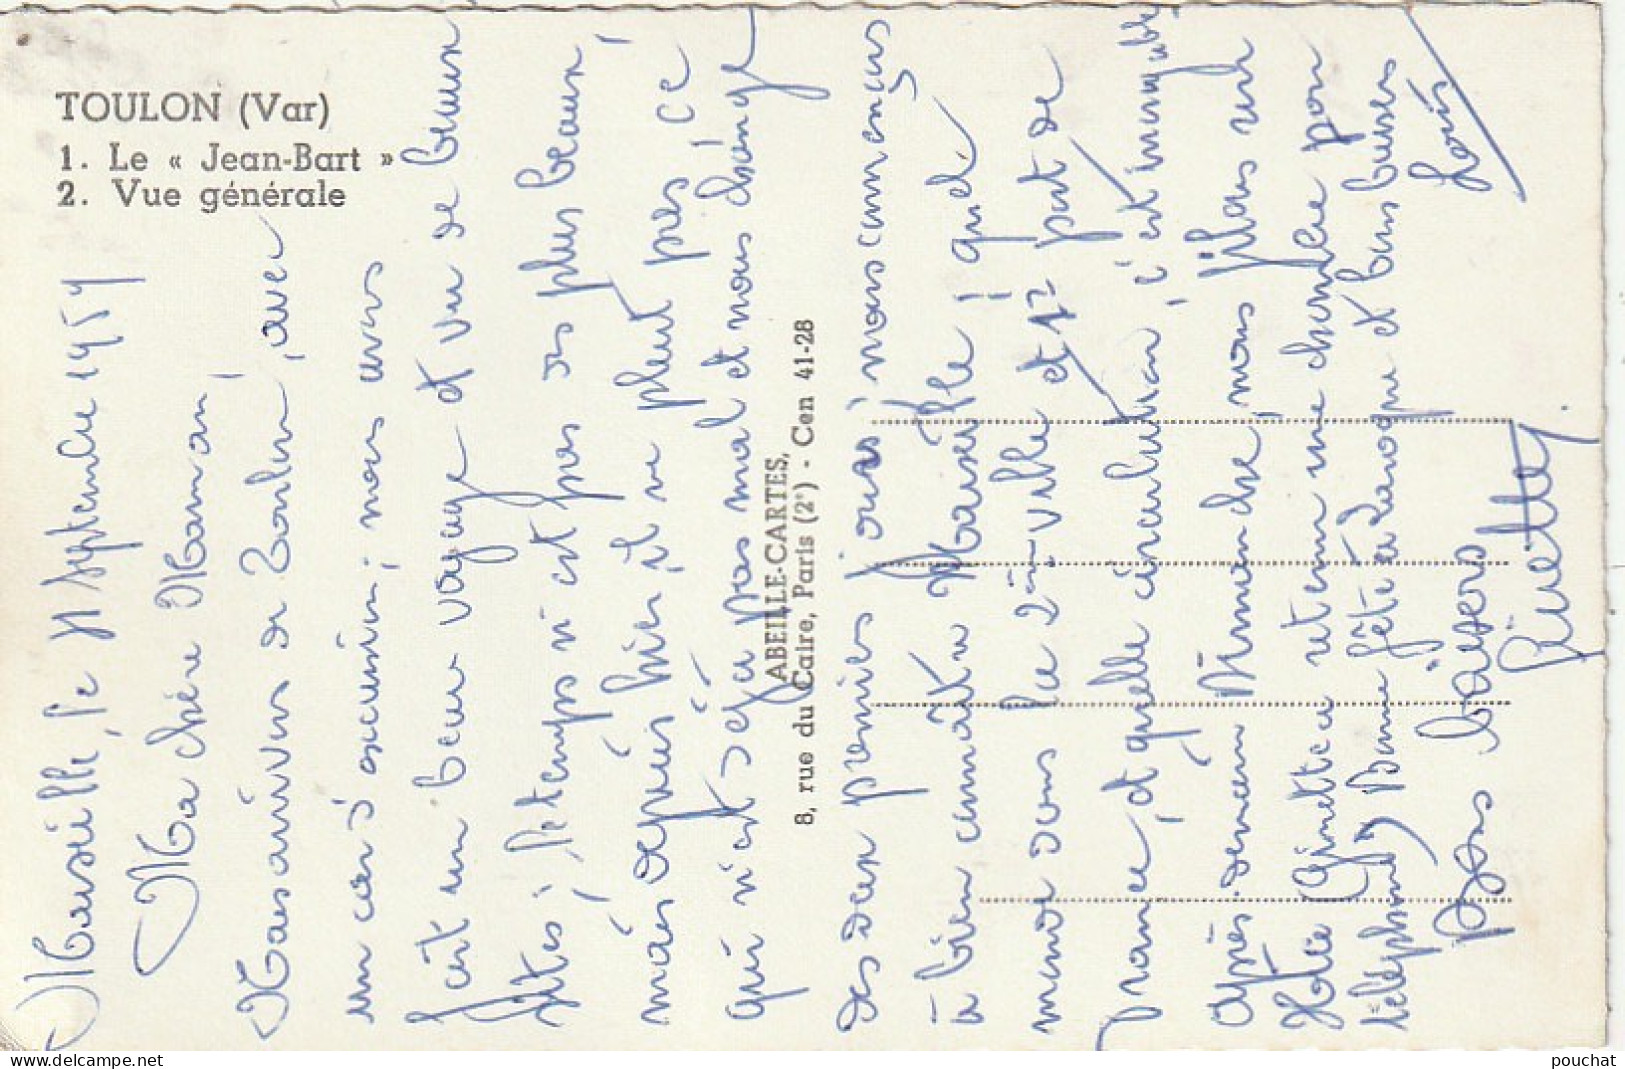 TOULON (Var)
1. Le « Jean-Bart »
2. Vue générale
ABEILLE-CARTES,
8, rue du Caire, Paris (2ᵉ) - Cen 41-28
Marseille, le 11 Septembre 1957
Ma chère Maman,
Nous arrivons de Toulon, avec
un car d'excursion; nous avons
fait un beau voyage et vu de beaux
sites; le temps n'est pas des plus beaux,
mais depuis hier il ne pleut pas, ce
qui n'est déjà pas mal et nous change
des deux premiers jours; nous commençons
à bien connaître Marseille; quel
monde dans la 2ème ville et 1er port de
France, et quelle circulation, c'est incroyable
Après-demain Dimanche, nous irons
Ginette a retenu une chambre pour
téléphone) Bonne fête à et bons baisers
Bons baisers
Ginette.